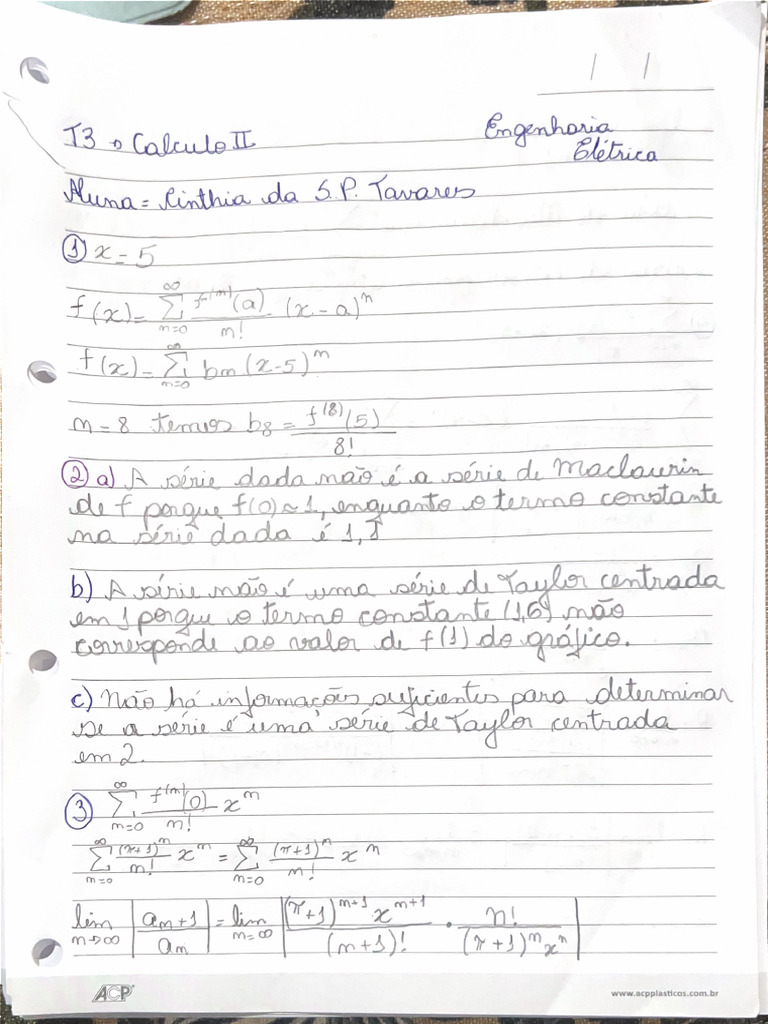 / /
T3 → Calculo II Engenharia
Elétrica
Aluna = Cinthia da S.P. Tavares
① x = 5
f(x) = ∑_{n=0}^{∞} f^{(n)}(a)/n! (x-a)^n
f(x) = ∑_{n=0}^{∞} bn (x-5)^n
n = 8 temos b8 = f^{(8)}(5)/8!
② a) A série dada não é a série de Maclaurin
de f porque f(0) ≈ 1, enquanto o termo constante
na série dada é 1,1
b) A série não é uma série de Taylor centrada
em 1 porque o termo constante (1,6) não
corresponde ao valor de f(1) do gráfico.
c) Não há informações suficientes para determinar
se a série é uma série de Taylor centrada
em 2.
③ ∑_{n=0}^{∞} f^{(n)}(0)/n! x^n
∑_{n=0}^{∞} (π+1)^n/n! x^n = ∑_{n=0}^{∞} (π+1)^n/n! x^n
lim_{n→∞} |a_{n+1}/a_n| = lim_{n=∞} |(π+1)^{n+1} x^{n+1}/(n+1)! · n!/(π+1)^n x^n|
ACP www.acpplasticos.com.br